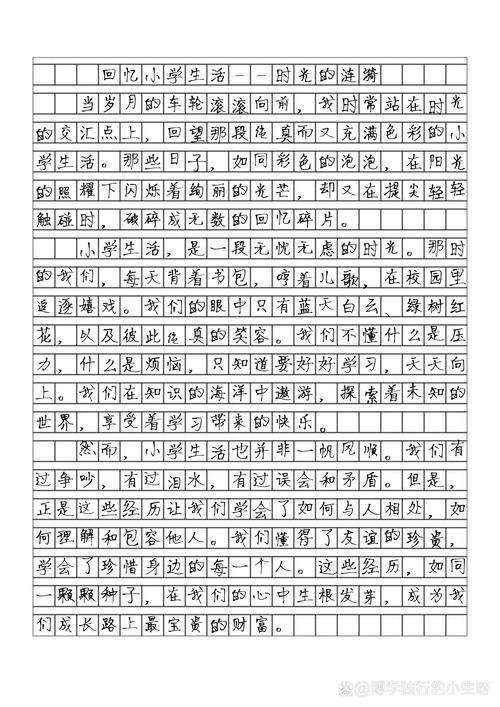 回忆小学生活--时光的涟漪
当岁月的车轮滚滚向前，我时常站在时光
的交汇点上，回望那段纯真而又充满色彩的小
学生活。那些日子，如同彩色的泡泡，在阳光
的照耀下闪烁着绚丽的光芒，却又在提尖轻轻
触碰时，破碎成无数的回忆碎片。
小学生活，是一段无忧无虑的时光。那时
的我们，每天背着书包，哼着儿歌，在校园里
追逐嬉戏。我们的眼中只有蓝天白云、绿树红
花，以及彼此纯真的笑容。我们不懂什么是压
力，什么是烦恼，只知道要好好学习，天天向
上。我们在知识的海洋中遨游，探索着未知的
世界，享受着学习带来的快乐。
然而，小学生活也并非一帆风顺。我们有
过争吵，有过泪水，有过误会和矛盾。但是，
正是这些经历让我们学会了如何与人相处，如
何理解和包容他人。我们懂得了友谊的珍贵，
学会了珍惜身边的每一个人。这些经历，如同
一颗颗种子，在我们的心中生根发芽，成为我
们成长路上最宝贵的财富。
@博学独行的小生呀